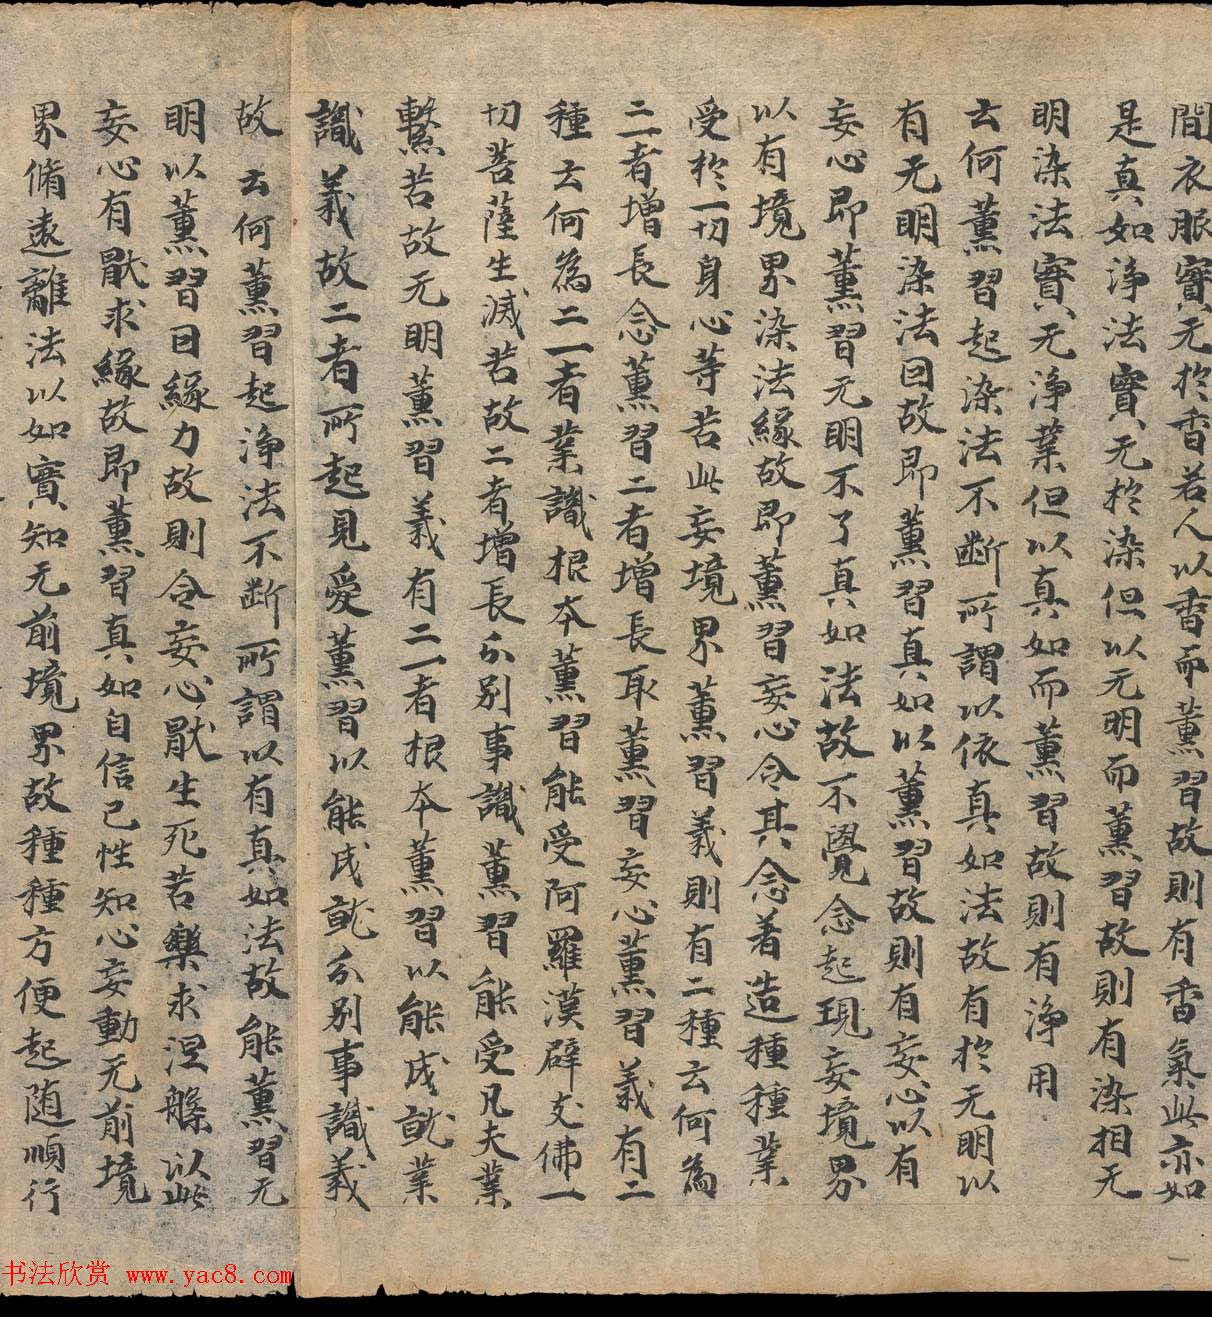 間衣服實无於香若人以香而薰習故則有香氣此亦如
是真如淨法實无於染但以无明而薰習故則有染相无
明染法實无淨業但以真如而薰習故則有淨用
云何薰習起染法不斷所謂以依真如法故有於无明以
有无明染法因故即薰習真如以薰習故則有妄心以有
妄心即薰習无明不了真如法故不覺念起現妄境界
以有境界染法緣故即薰習妄心令其念著造種種業
受於一切身心等苦此妄境界薰習義則有二種云何為
二一者增長念薰習二者增長取薰習妄心薰習義有二
種云何為二一者業識根本薰習能受阿羅漢辟支佛一
切菩薩生滅苦故二者增長分別事識薰習能受凡夫業
繫苦故无明薰習義有二一者根本薰習以能成就業
識義故二者所起見愛薰習以能成就分別事識義
故 云何薰習起淨法不斷所謂以有真如法故能薰習无
明以薰習因緣力故則令妄心猒生死苦樂求涅槃以此
妄心有猒求緣故即薰習真如自信己性知心妄動无前境
界脩遠離法以如實知无前境界故種種方便起随順行
书法欣赏 www.yac8.com